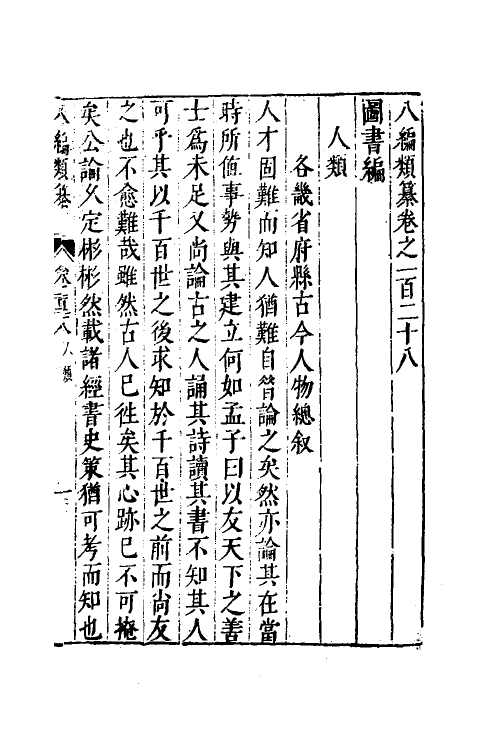 八編類纂卷之一百二十八
圖書編
人類
各畿省府縣古今人物總叙
人才固難而知人猶難自昔論之矣然亦論其在當
時所值事勢與其建立何如孟子曰以友天下之善
士為未足又尚論古之人誦其詩讀其書不知其人
可乎其以千百世之後求知於千百世之前而尚友
之也不愈難哉雖然古人已徃矣其心跡已不可掩
矣公論久定彬彬然載諸經書史策猶可考而知也
八編類纂 卷一百二十八 人類 一